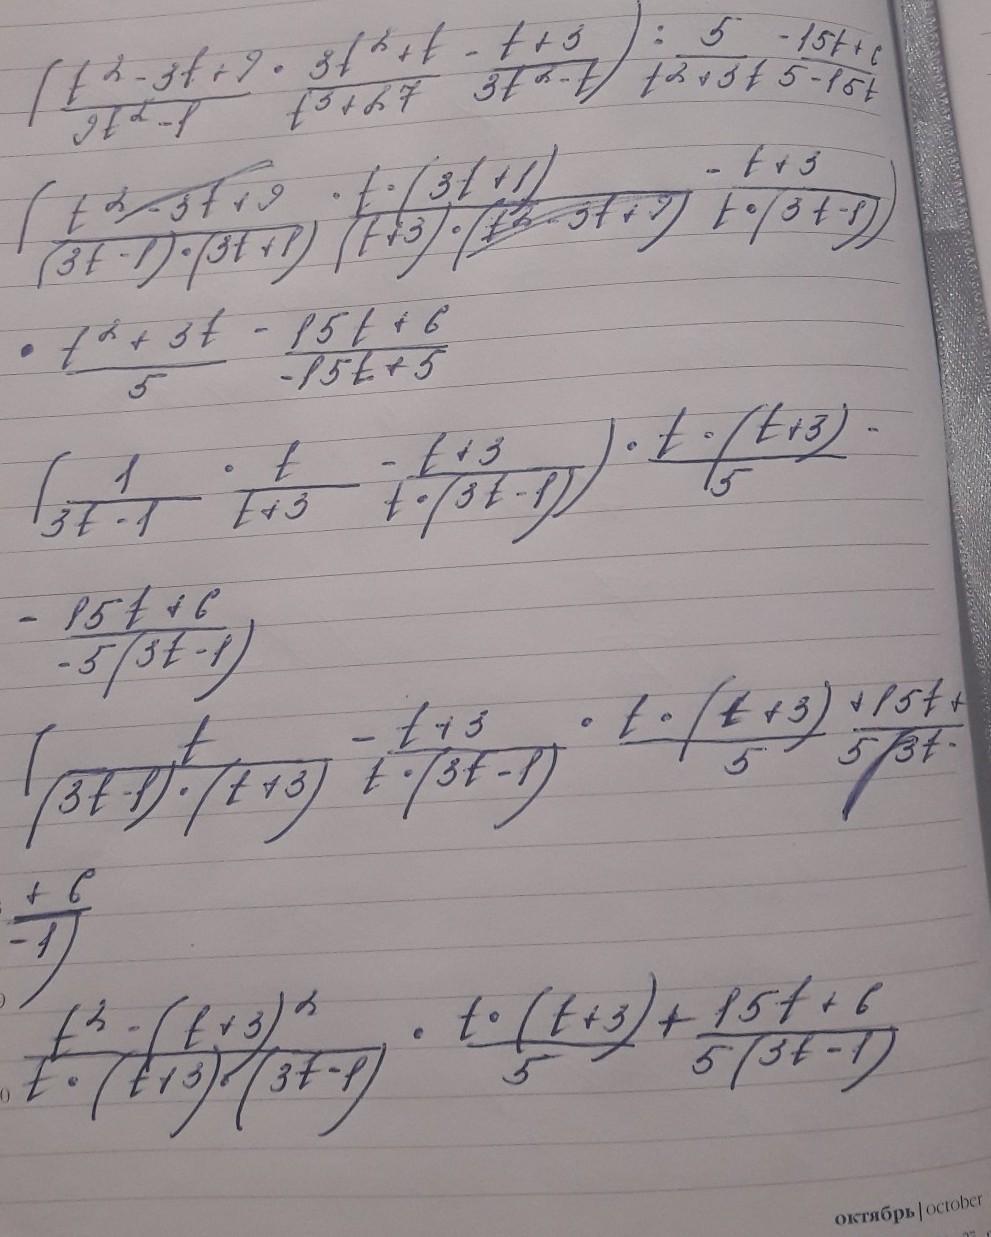 (t²-3t+9 / 9t²-1 · 3t²+t / t³+27 - t+3 / 3t²-t) : 5 / t²+3t - 15t+6 / 5-15t
(t²-3t+9 / (3t-1)·(3t+1) · t·(3t+1) / (t+3)·(t²-3t+9) - t+3 / t·(3t-1))
· t²+3t / 5 - 15t+6 / -15t+5
(1 / 3t-1 · t / t+3 - t+3 / t·(3t-1)) · t·(t+3) / 5 -
- 15t+6 / -5(3t-1)
(t / (3t-1)·(t+3) - t+3 / t·(3t-1) · t·(t+3) / 5 + 15t+ / 5(3t-
+6 / -1)
t²-(t+3)² / t·(t+3)·(3t-1) · t·(t+3) / 5 + 15t+6 / 5(3t-1)
октябрь|october